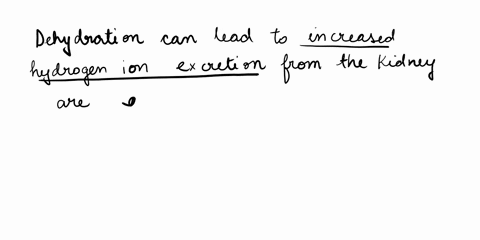 Dehydration can lead to increased
hydrogen ion excretion from the Kidney
are